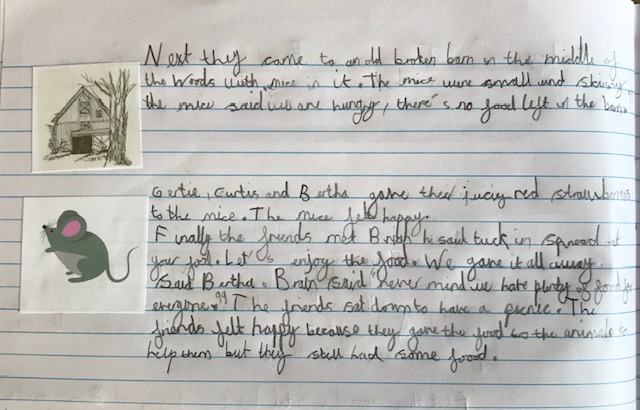 Next they came to an old broken barn in the middle of
the woods with mice in it. The mice were small and skinny
the mice said "we are hungry, there's no food left in the barn.
Gertie, Curtis and Bertha gave their juciy red strawberries
to the mice. The mice felt happy.
Finally the friends met Bryan he said tuck in spread out
your food. Let's enjoy the food. We gave it all away
Said Bertha. Brain said "never mind we hate plenty of food for
everyone." The friends sat down to have a picnic. The
friends felt happy because they gave the food to the animals to
help them but they still had some food.